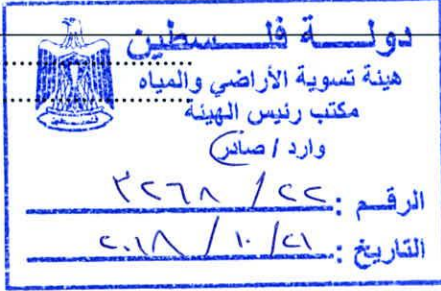 دولــــة فلــــسطين
هيئة تسوية الأراضي والمياه
مكتب رئيس الهيئة
وارد / صادر
الرقم : ٢٢ / ٣٢٦٨
التاريخ : ٢١ / ١٠ / ٢٠١٨